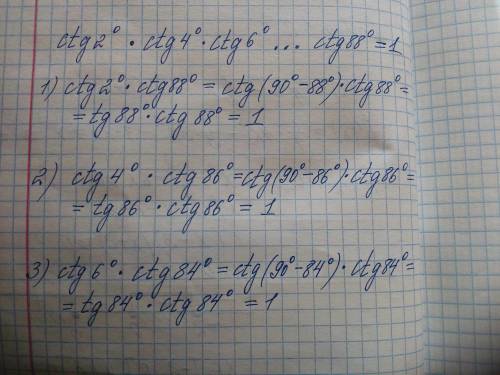 ctg2° · ctg4° · ctg6° ... ctg88° = 1
1) ctg2° · ctg88° = ctg(90°-88°) · ctg88° =
= tg88° · ctg88° = 1
2) ctg4° · ctg86° = ctg(90°-86°) · ctg86° =
= tg86° · ctg86° = 1
3) ctg6° · ctg84° = ctg(90°-84°) · ctg84° =
= tg84° · ctg84° = 1